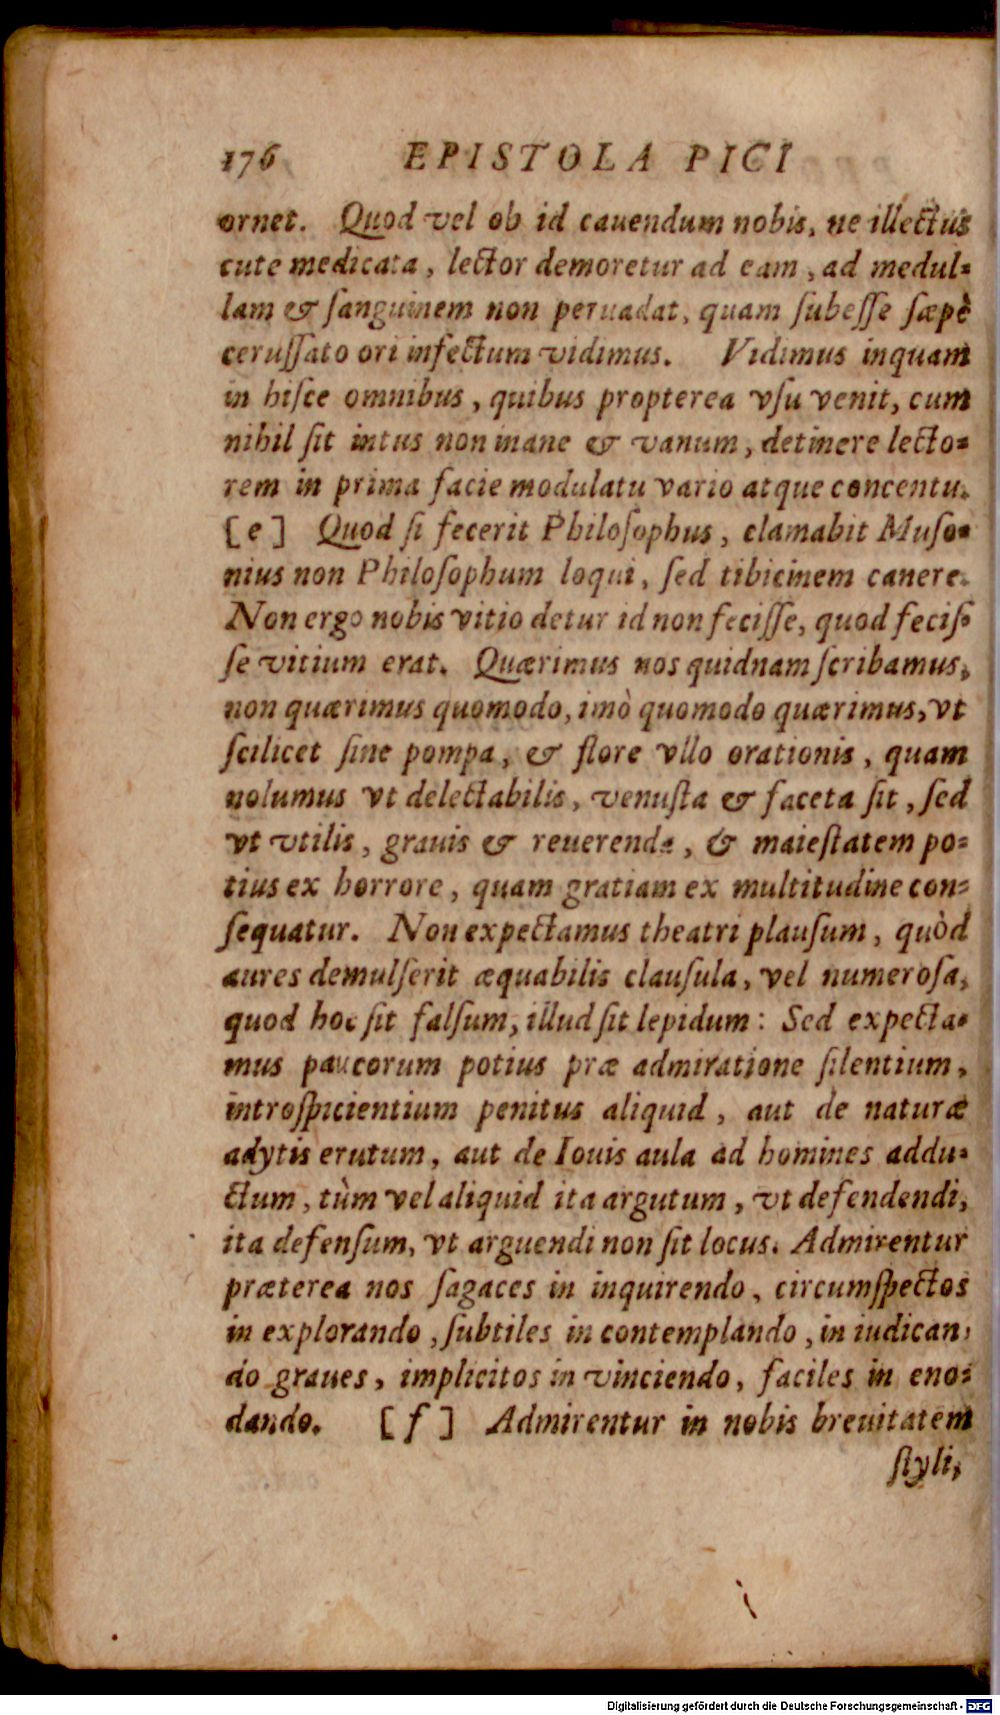 176 EPISTOLA PICI
ornet. Quod vel ob id cauendum nobis, ne illectus
cute medicata, lector demoretur ad eam, ad medul-
lam & ſanguinem non peruadat, quam ſubeſſe ſæpè
ceruſſato ori infectum vidimus. Vidimus inquam
in hiſce omnibus, quibus propterea vſu venit, cum
nihil ſit intus non inane & vanum, detinere lecto-
rem in prima facie modulatu vario atque concentu.
[e] Quod ſi fecerit Philoſophus, clamabit Muſo-
nius non Philoſophum loqui, ſed tibicinem canere.
Non ergo nobis vitio detur id non feciſſe, quod feciſ-
ſe vitium erat. Quærimus nos quidnam ſcribamus,
non quærimus quomodo, imò quomodo quærimus, vt
ſcilicet ſine pompa, & flore vllo orationis, quam
nolumus vt delectabilis, venuſta & faceta ſit, ſed
vt vtilis, grauis & reuerenda, & maieſtatem po-
tius ex horrore, quam gratiam ex multitudine con-
ſequatur. Non expectamus theatri plauſum, quòd
aures demulſerit æquabilis clauſula, vel numeroſa,
quod hoc ſit falſum, illud ſit lepidum: Sed expecta-
mus paucorum potius præ admiratione ſilentium,
introſpicientium penitus aliquid, aut de naturæ
adytis erutum, aut de Iouis aula ad homines addu-
ctum, tùm vel aliquid ita argutum, vt defendendi,
ita defenſum, vt arguendi non ſit locus. Admirentur
præterea nos ſagaces in inquirendo, circumſpectos
in explorando, ſubtiles in contemplando, in iudican-
do graues, implicitos in vinciendo, faciles in eno-
dando. [f] Admirentur in nobis breuitatem
ſtyli,
Digitalisierung gefördert durch die Deutsche Forschungsgemeinschaft - DFG